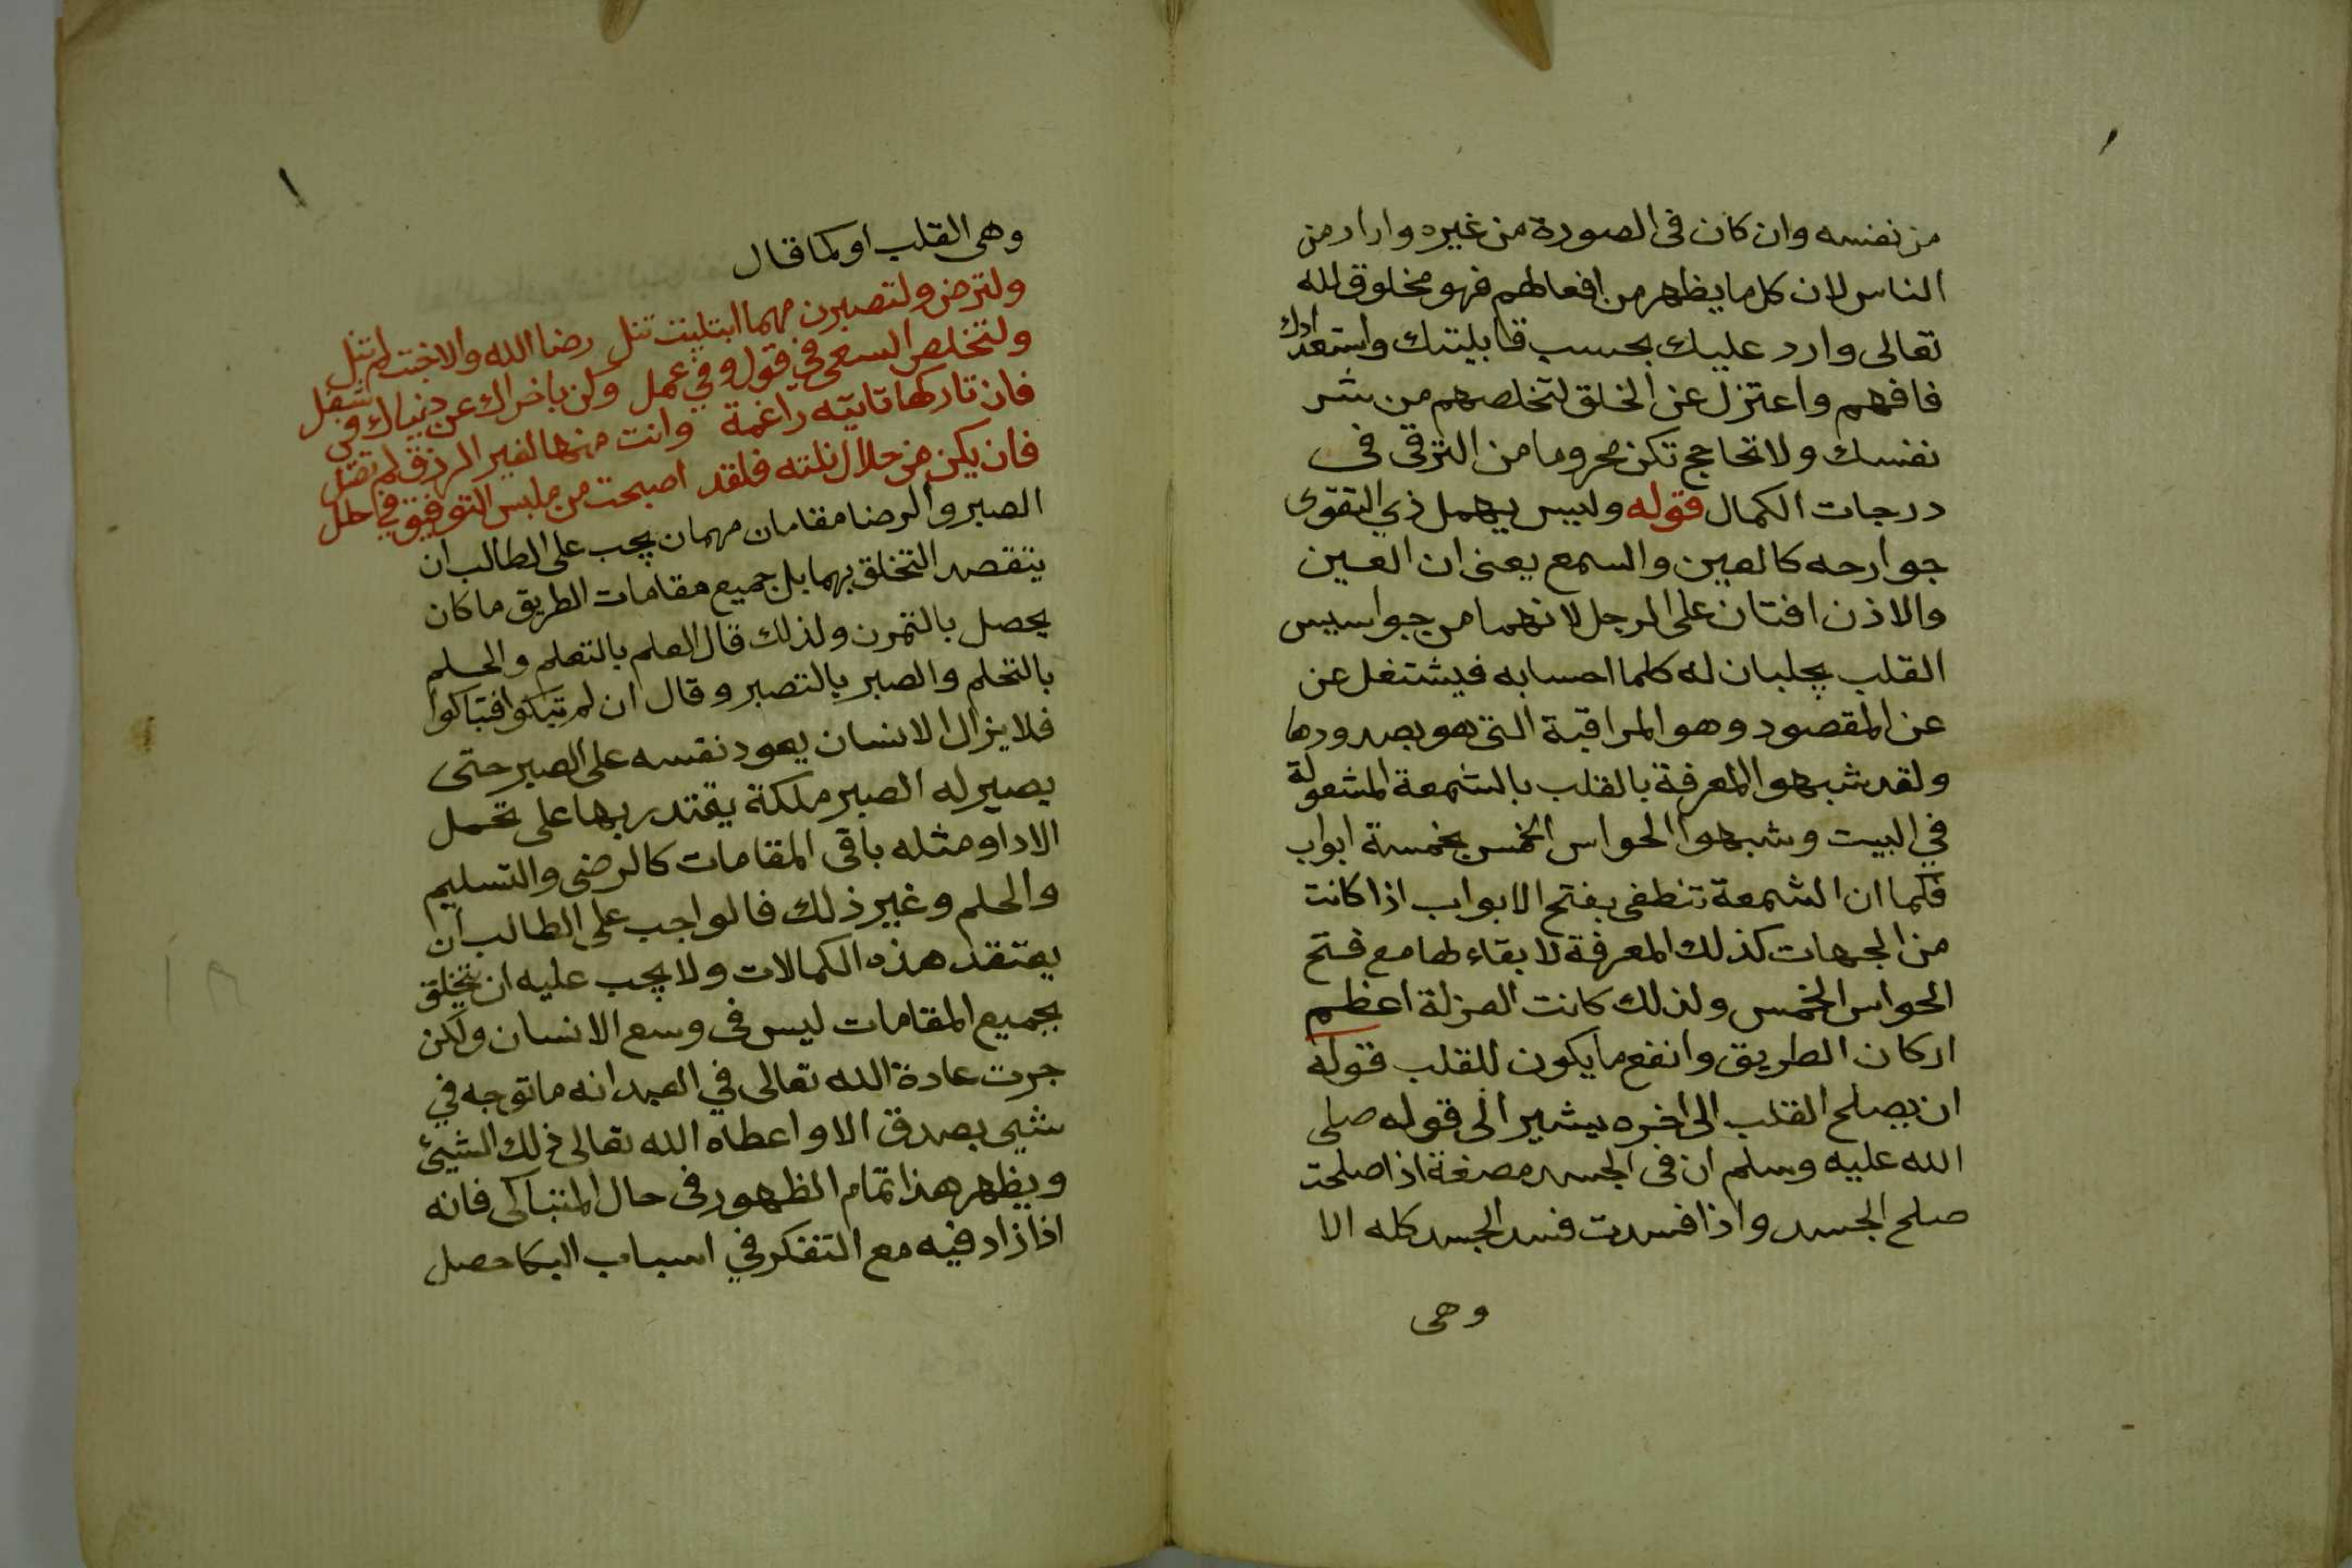 من نفسه وان كان في الصورة من غيره واراد من
الناس لان كل ما يظهر من افعالهم فهو مخلوق لله
تعالى وارد عليك بحسب قابليتك واستعدادك
فافهم واعتزل عن الخلق لتخلصهم من شر
نفسك ولا تحاجج تكن محروما من الترقي في
درجات الكمال قوله وليس يهمل ذي التقوى
جوارحه كالعين والسمع يعنى ان العين
والاذن افتان على الرجل لانهما من جواسيس
القلب يجلبان له كلما احسا به فيشتغل عن
عن المقصود وهو المراقبة التي هو بصددها
ولقد شبهوا المعرفة بالقلب بالشمعة المشعولة
في البيت وشبهوا الحواس الخمس بخمسة ابواب
فكما ان الشمعة تنطفى بفتح الابواب اذا كانت
من الجهات كذلك المعرفة لا بقاء لها مع فتح
الحواس الخمس ولذلك كانت العزلة اعظم
اركان الطريق وانفع ما يكون للقلب قوله
ان يصلح القلب الى اخره يشير الى قوله صلى
الله عليه وسلم ان في الجسد مضغة اذا صلحت
صلح الجسد واذا فسدت فسد الجسد كله الا
وهى
وهى القلب او كما قال
ولترض ولتصبرن مهما ابتليت تنل رضا الله والا خبت لم تنل
ولتخلص السعى في قول وفي عمل وكن باخراك عن دنياك في شغل
فان تاركها تاتيه راغمة وانت منها لغير الرزق لم تصل
فان يكن من حلال نلته فلقد اصبحت من ملبس التوفيق في حلل
الصبر والرضا مقامان مهمان يجب على الطالب ان
يتقصد التخلق بهما بل جميع مقامات الطريق ما كان
يحصل بالتمرن ولذلك قال العلم بالتعلم والحلم
بالتحلم والصبر بالتصبر وقال ان لم تبكوا فتباكوا
فلا يزال الانسان يعود نفسه على الصبر حتى
يصير له الصبر ملكة يقتدر بها على تحمل
الاداو مثله باقى المقامات كالرضى والتسليم
والحلم وغير ذلك فالواجب على الطالب ان
يعتقد هذه الكمالات ولا يجب عليه ان يتخلق
بجميع المقامات ليس في وسع الانسان ولكن
جرت عادة الله تعالى في العبد انه ما توجه في
شيى بصدق الا واعطاه الله تعالى ذلك الشيئ
ويظهر هذا تمام الظهور في حال المتباكى فانه
اذا زاد فيه مع التفكر في اسباب البكا حصل
١٨